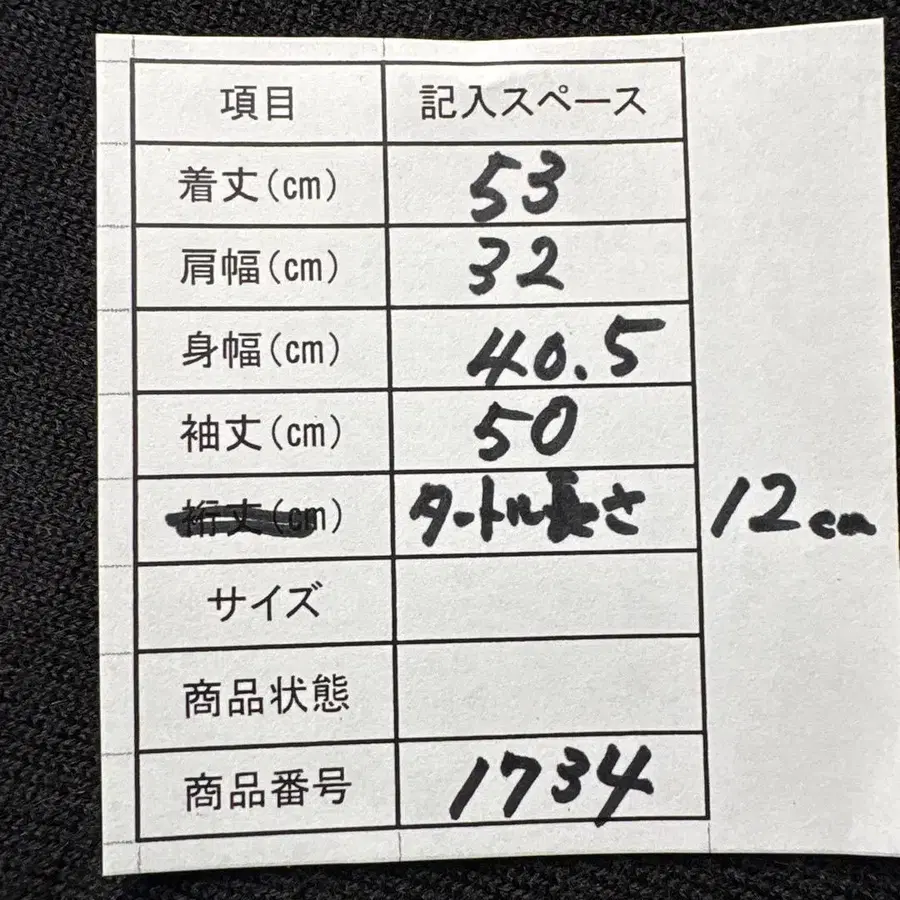 項目 記入スペース
着丈(cm) 53
肩幅(cm) 32
身幅(cm) 40.5
袖丈(cm) 50
裄丈(cm) タートル長さ 12cm
サイズ
商品状態
商品番号 1734